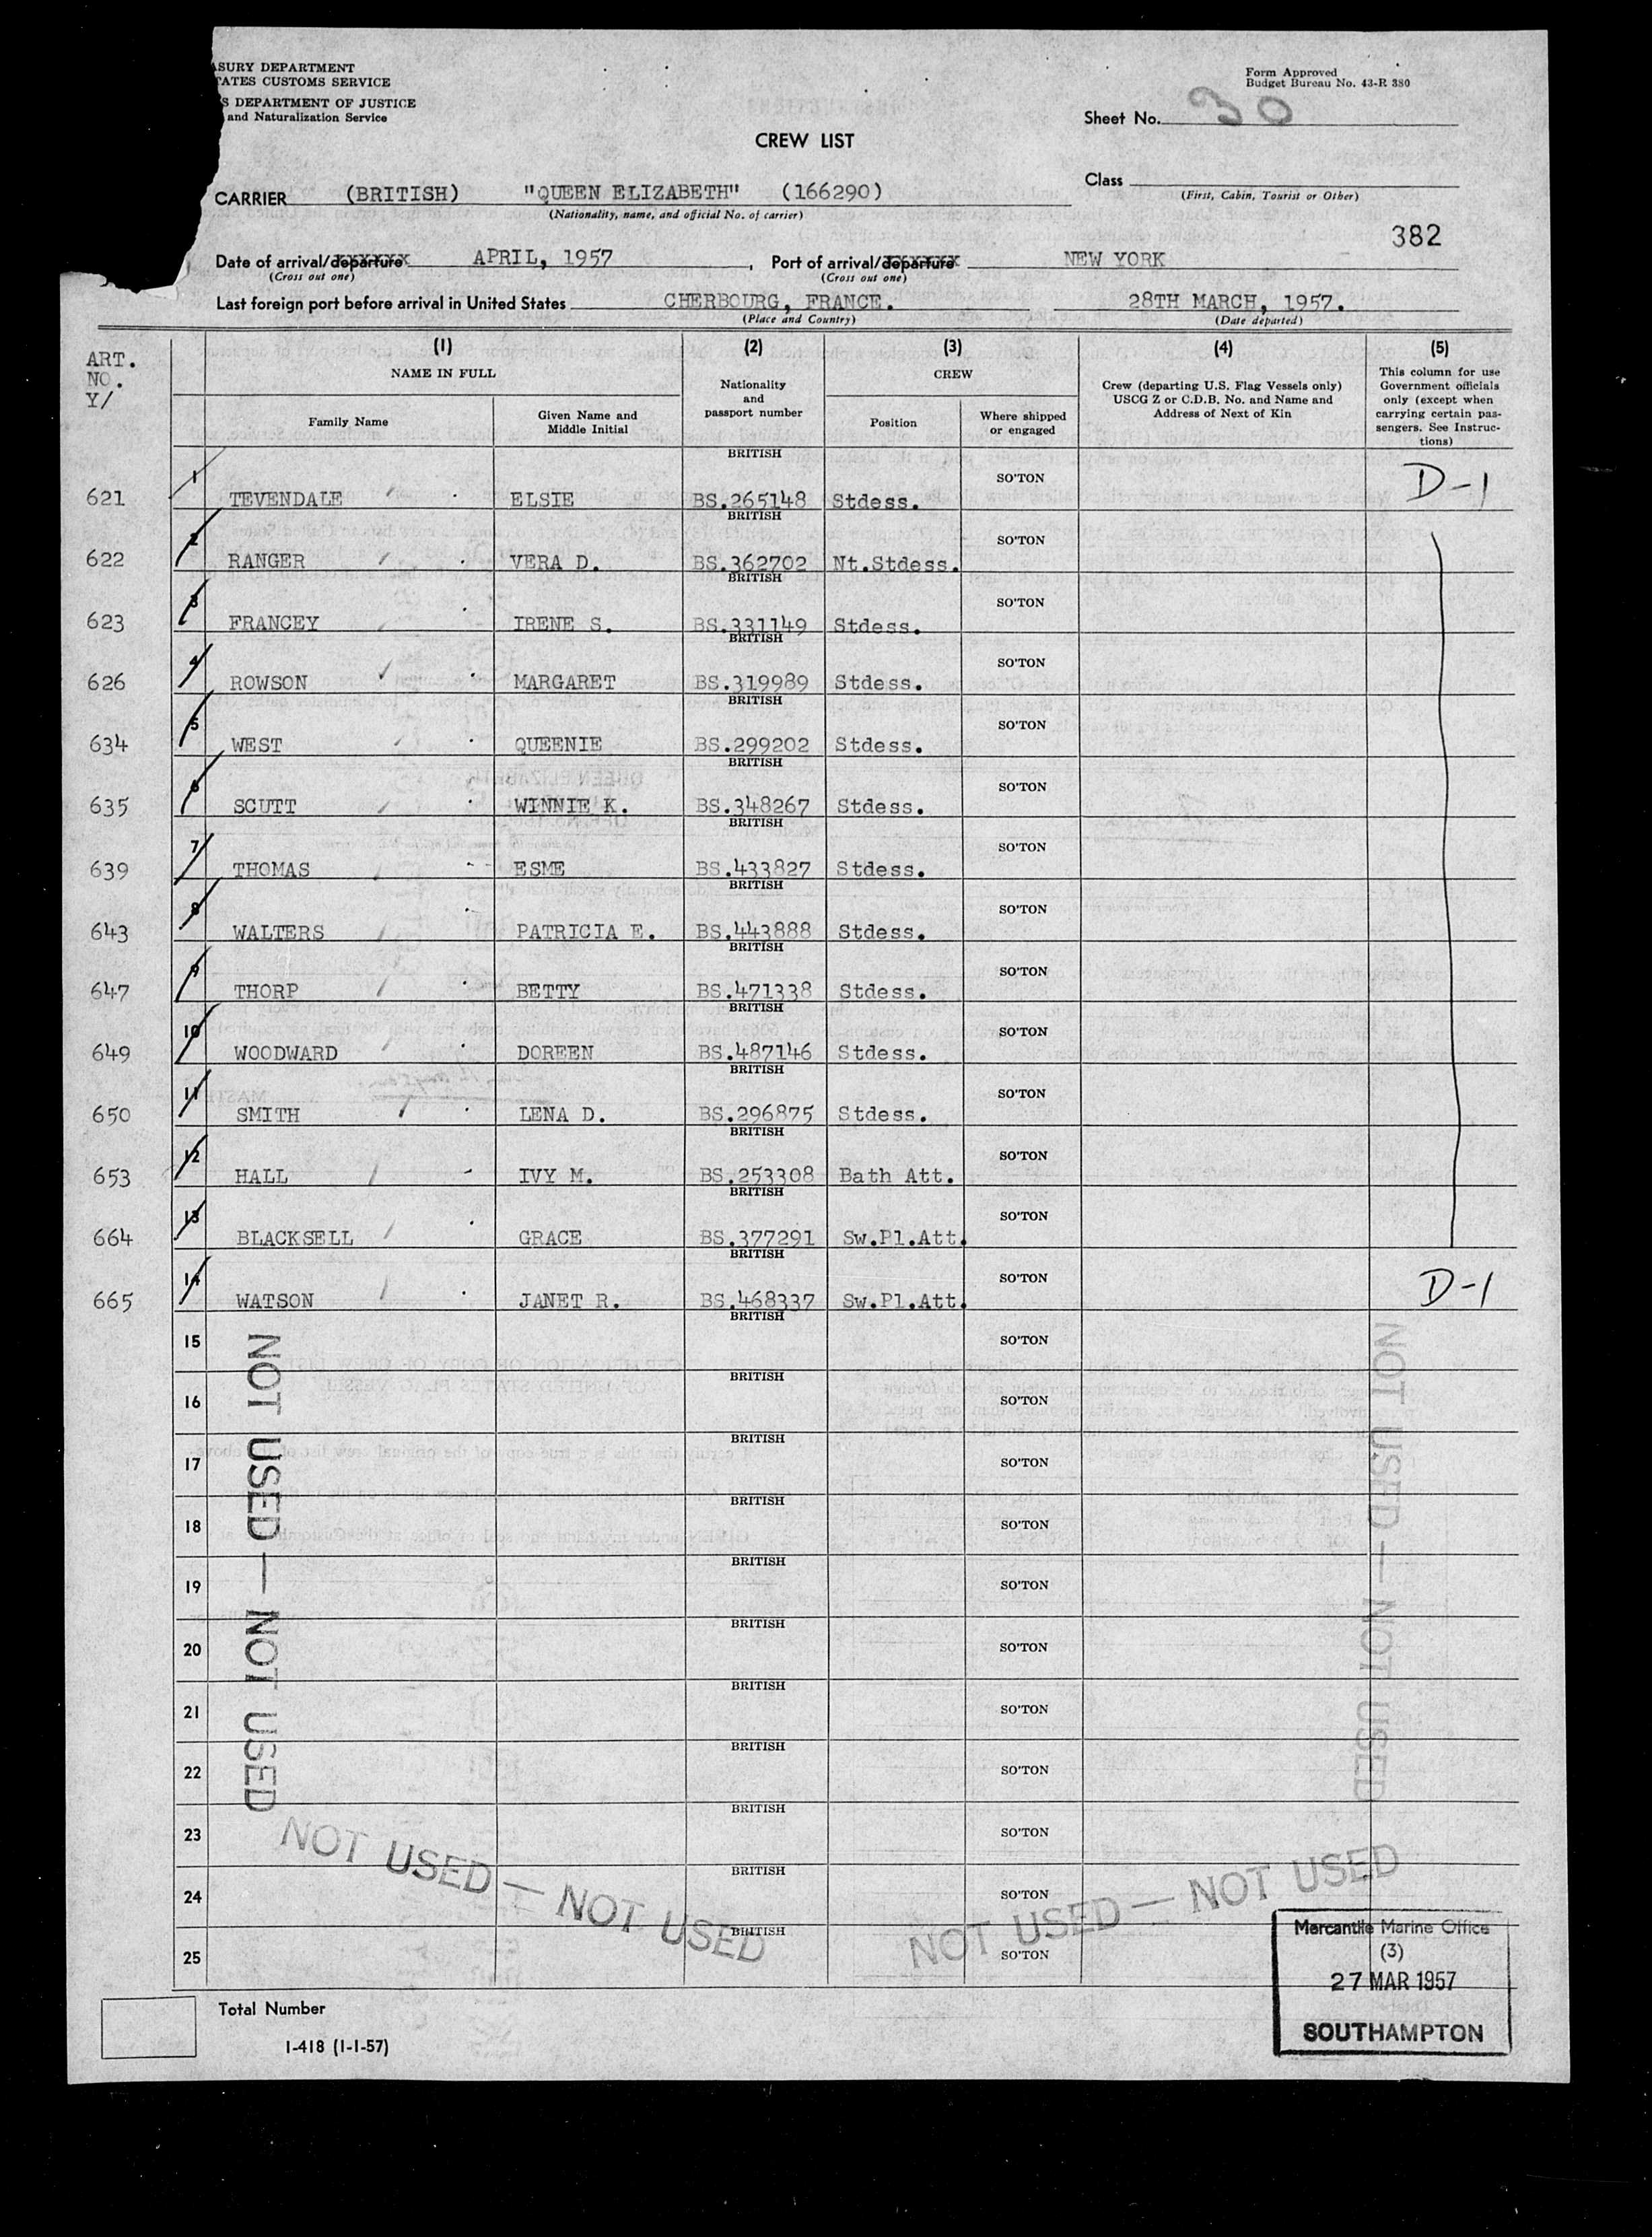 ASURY DEPARTMENT
TATES CUSTOMS SERVICE
S DEPARTMENT OF JUSTICE
and Naturalization Service
Form Approved
Budget Bureau No. 43-R 380
Sheet No. 30
CREW LIST
CARRIER (BRITISH) "QUEEN ELIZABETH" (166290)
(Nationality, name, and official No. of carrier)
Class
(First, Cabin, Tourist or Other)
382
Date of arrival/departure APRIL, 1957, Port of arrival/departure NEW YORK
(Cross out one) (Cross out one)
Last foreign port before arrival in United States CHERBOURG, FRANCE. 28TH MARCH, 1957.
(Place and Country) (Date departed)
ART.
NO.
Y/
(1) (2) (3) (4) (5)
NAME IN FULL
Family Name
Given Name and
Middle Initial
Nationality
and
passport number
CREW
Position
Where shipped
or engaged
Crew (departing U.S. Flag Vessels only)
USCG Z or C.D.B. No. and Name and
Address of Next of Kin
This column for use
Government officials
only (except when
carrying certain pas-
sengers. See Instruc-
tions)
621 1 TEVENDALE ELSIE BRITISH BS.265148 Stdess. SO'TON D-1
622 2 RANGER VERA D. BRITISH BS.362702 Nt.Stdess. SO'TON
623 3 FRANCEY IRENE S. BRITISH BS.331149 Stdess. SO'TON
626 4 ROWSON MARGARET BRITISH BS.319989 Stdess. SO'TON
634 5 WEST QUEENIE BRITISH BS.299202 Stdess. SO'TON
635 6 SCUTT WINNIE K. BRITISH BS.348267 Stdess. SO'TON
639 7 THOMAS ESME BRITISH BS.433827 Stdess. SO'TON
643 8 WALTERS PATRICIA E. BRITISH BS.443888 Stdess. SO'TON
647 9 THORP BETTY BRITISH BS.471338 Stdess. SO'TON
649 10 WOODWARD DOREEN BRITISH BS.487146 Stdess. SO'TON
650 11 SMITH LENA D. BRITISH BS.296875 Stdess. SO'TON
653 12 HALL IVY M. BRITISH BS.253308 Bath Att. SO'TON
664 13 BLACKSELL GRACE BRITISH BS.377291 Sw.Pl.Att. SO'TON
665 14 WATSON JANET R. BRITISH BS.468337 Sw.Pl.Att. SO'TON D-1
15 BRITISH SO'TON
16 BRITISH SO'TON
17 BRITISH SO'TON
18 BRITISH SO'TON
19 BRITISH SO'TON
20 BRITISH SO'TON
21 BRITISH SO'TON
22 BRITISH SO'TON
23 BRITISH SO'TON
24 BRITISH SO'TON
25 BRITISH SO'TON
NOT USED — NOT USED
NOT USED — NOT USED
NOT USED — NOT USED
NOT USED — NOT USED
Mercantile Marine Office
(3)
27 MAR 1957
SOUTHAMPTON
Total Number
I-418 (1-1-57)